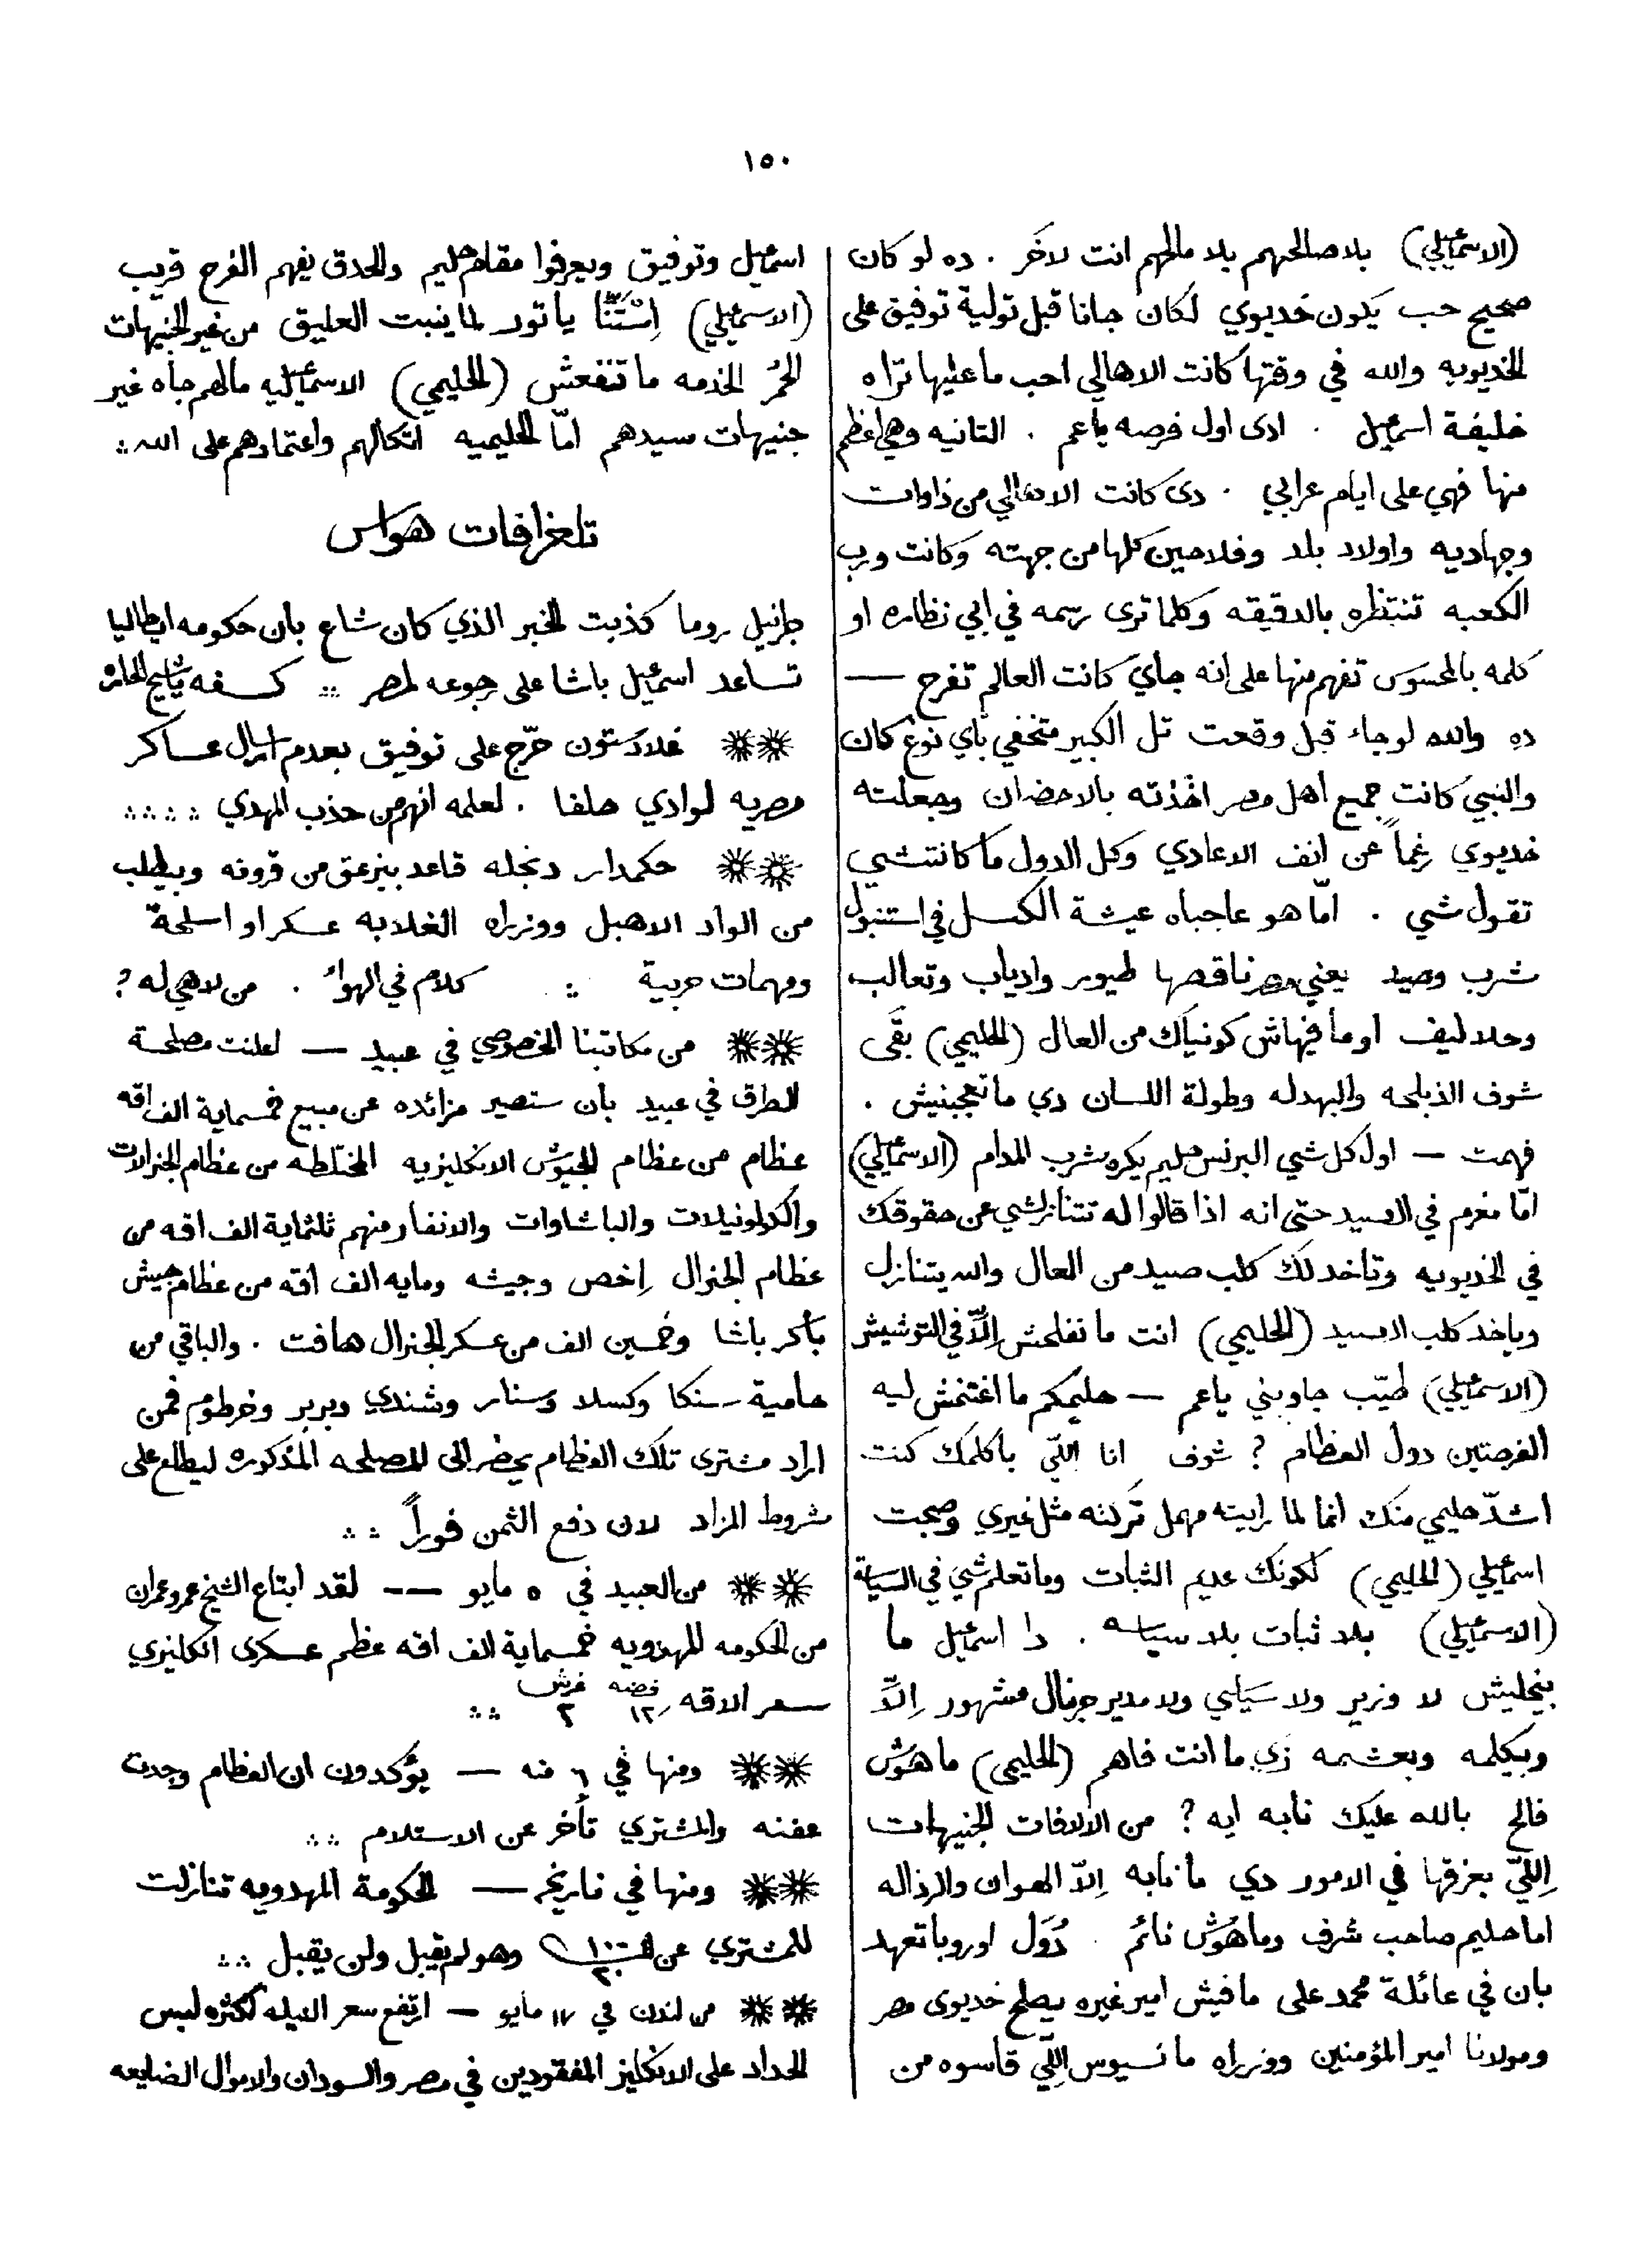 ١٥٠
(الاسمٰعيلي) بلا صالحهم بلا مالحهم انت لاخَر . ده لو كان
صحيح حب يكون خديوي لكان جانا قبل تولية توفيق على
الخديويه والله في وقتها كانت الاهالي احب ما عليها تراه
خليفة اسمٰعيل . ادى اول فرصه يا عم . التانيه وهي اعظم
منها فهي على ايام عرابي . دى كانت الاهالي من ذاوات
وجهاديه واولاد بلد وفلاحين كلها من جهته وكانت ورب
الكعبه تنتظره بالدقيقه وكلما ترى رسمه في ابي نظاره او
كلمه بالمحسوس تفهم منها على انه جاي كانت العالم تفرح —
ده والله لو جاء قبل وقعت تل الكبير متخفي باي نوع كان
والنبي كانت جميع اهل مصر اخذته بالاحضان وجعلته
خديوي رغماً عن انف الاعادي وكل الدول ما كانتشي
تقول شي . امّا هو عاجباه عيشة الكسل في استنبول
شرب وصيد يعني مصر ناقصها طيور وادياب وتعالب
وحلاليف او ما فيهاش كونياك من العال (الحليمي) بقَى
شوف الذبلحه والبهدله وطولة اللسان دي ما تعجبنيش .
فهمت — اول كل شي البرنس حليم يكره شرب المدام (الاسمٰعيلي)
امّا مغرم في الصيد حتى انه اذا قالوا له تتنازلشي عن حقوقك
في الخديويه وتاخد لك كلب صيد من العال والله يتنازل
وياخد كلب الصيد (الحليمي) انت ما تفلحش اِلّا في التوشيش
(الاسمٰعيلي) طيّب جاوبني يا عم — حليمكم ما اغتنمش ليه
الفرصتين دول العظام ؟ شوف انا اللّي باكلمك كنت
اشدّ حليمي منك انما لما رايته مهمل تركته مثل غيري وصبحت
اسمٰعيلي (الحليمي) لكونك عديم الثبات وما تعلم شي في السياسة
(الاسمٰعيلي) بلا ثبات بلا سياسه . دا اسمٰعيل ما
بيخليش لا وزير ولا سياسي ولا مدير جرنال مشهور اِلّا
وبيكلمه وبعشمه زي ما انت فاهم (الحليمي) ما هوّش
فالح بالله عليك نابه ايه ؟ من الالافات الجنيهات
اِللّي بعزقها في الامور دي ما نابه اِلّا الهوان والرذاله
اما حليم صاحب شرف وما هوّش نائم . دُوَل اوروبا تعهد
بان في عائلة محمد على ما فيش امير غيره يصلح خديوى مصر
ومولانا امير المؤمنين ووزراه ما نسيوس اللّي قاسوه من
اسمٰعيل وتوفيق ويعرفوا مقام حليم والحدق يفهم الفرج قريب
(الاسمٰعيلي) اِسْتَنّا يا تور لما ينبت العليق من غير الجنيهات
الحُمرُ الخدمه ما تنفعش (الحليمي) الاسمٰعيليه مالهم جاه غير
جنيهات سيدهم امّا الحليميه اتكالهم واعتمادهم على الله ::
تلغرافات هواس
جرانيل روما كذبت الخبر الذي كان شاع بان حكومه ايطاليا
تساعد اسمٰعيل باشا على رجوعه لمصر :: كسفه يا شيخ الحاره
غلادستون حرّج على توفيق بعدم ارسال عساكر
مصريه لوادي حلفا . لعلمه انهم من حذب المهدي :: ::
حكمدار دنجله قاعد بيزعق من قرونه ويطلب
من الواد الاهبل ووزراه الغلابه عسكر او اسلحة
ومهمات حربية :: كلام في الهواء . من لاهي له ؟
من مكاتبنا الخصوصي في عبيد — اعلنت مصلحة
الطرق في عبيد بان ستصير مزائده عن مبيع خمسماية الف اقه
عظام من عظام الجيوش الانكليزيه المختلطه من عظام الجنرالات
والكولونيلات والباشاوات والانفار منهم ثلثماية الف اقه من
عظام الجنرال اِخص وجيشه ومايه الف اقه من عظام جيش
باكر باشا وخمسين الف من عسكر الجنرال هافت . والباقي من
حامية سنكا وكسلا وسنار وشندي وبربر وخرطوم فمن
اراد مشترى تلك العظام يحضر الى المصلحه المذكوره ليطلع على
شروط المزاد لان دفع الثمن فوراً ::
من العبيد في ٥ مايو —— لقد ابتاع الشيخ عمرو عمران
من الحكومه المهدويه خمسماية الف اقه عظم عسكرى انكليزي
سعر الاقه فضه ١٢ غرش ٢ ::
ومنها في ٦ منه — يؤكدون ان العظام وجدت
عفنه والمشتري تأخر عن الاستلام ::
ومنها في تاريخه — الحكومة المهدويه تنازلت
للمشتري عن وهو لم يقبل ولن يقبل ::
من لندن في ١٧ مايو — ارتفع سعر النيله لكثره لبس
الحداد على الانكليز المفقودين في مصر والسودان والاموال الضايعه